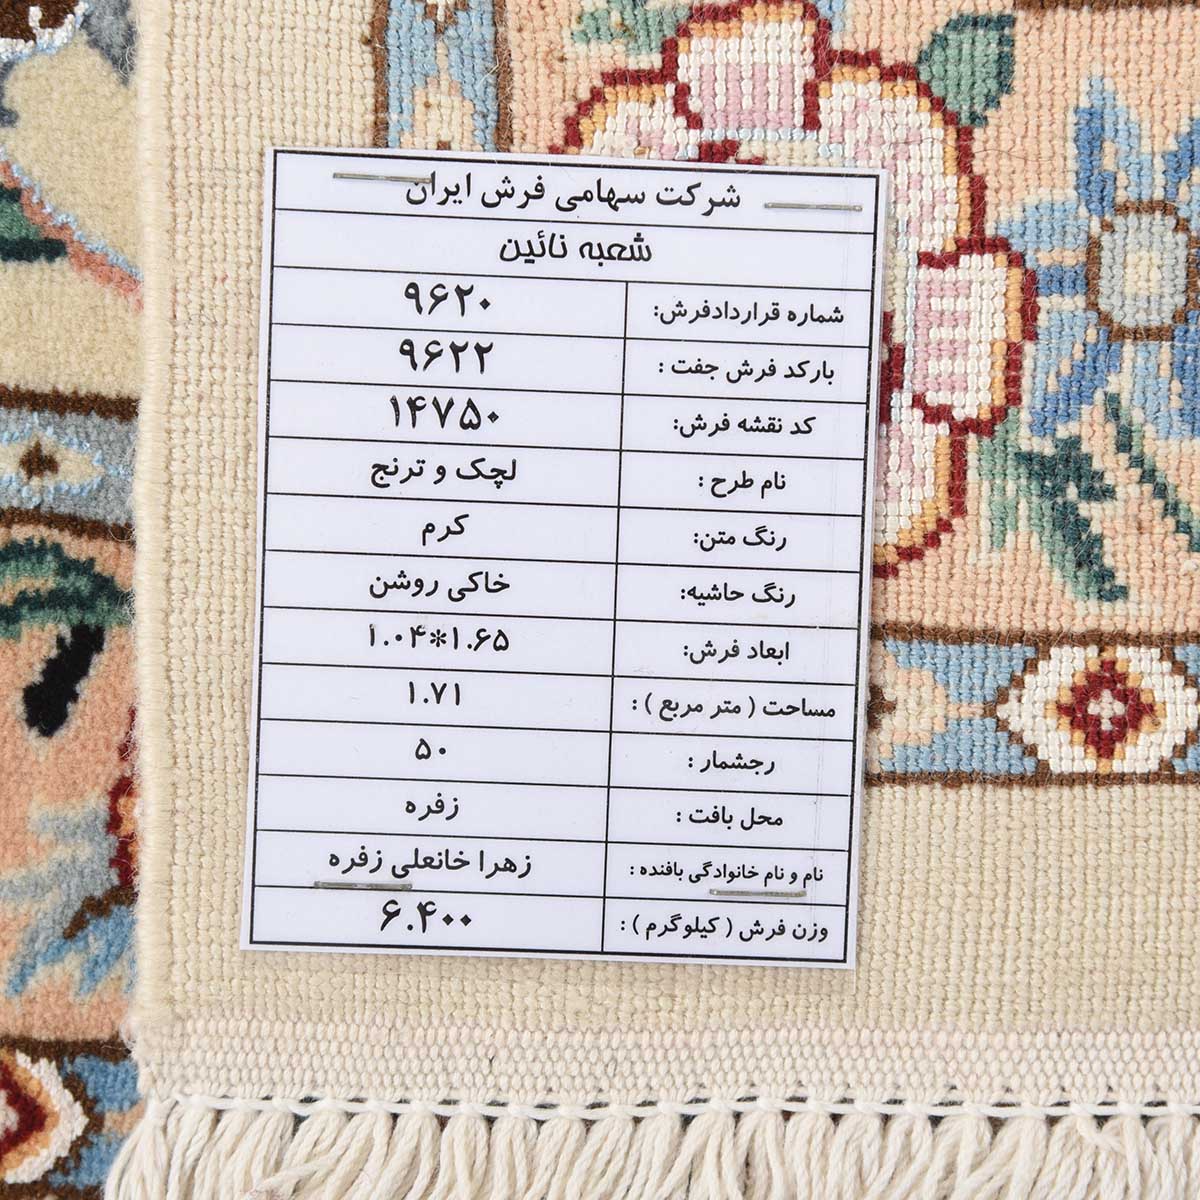 شرکت سهامی فرش ایران
شعبه نائین
شماره قراردادفرش: ۹۶۲۰
بارکد فرش جفت : ۹۶۲۲
کد نقشه فرش: ۱۴۷۵۰
نام طرح : لچک و ترنج
رنگ متن: کرم
رنگ حاشیه: خاکی روشن
ابعاد فرش: ۱.۰۴*۱.۶۵
مساحت ( متر مربع ) : ۱.۷۱
رجشمار : ۵۰
محل بافت : زفره
نام و نام خانوادگی بافنده : زهرا خانعلی زفره
وزن فرش ( کیلوگرم ) : ۶.۴۰۰